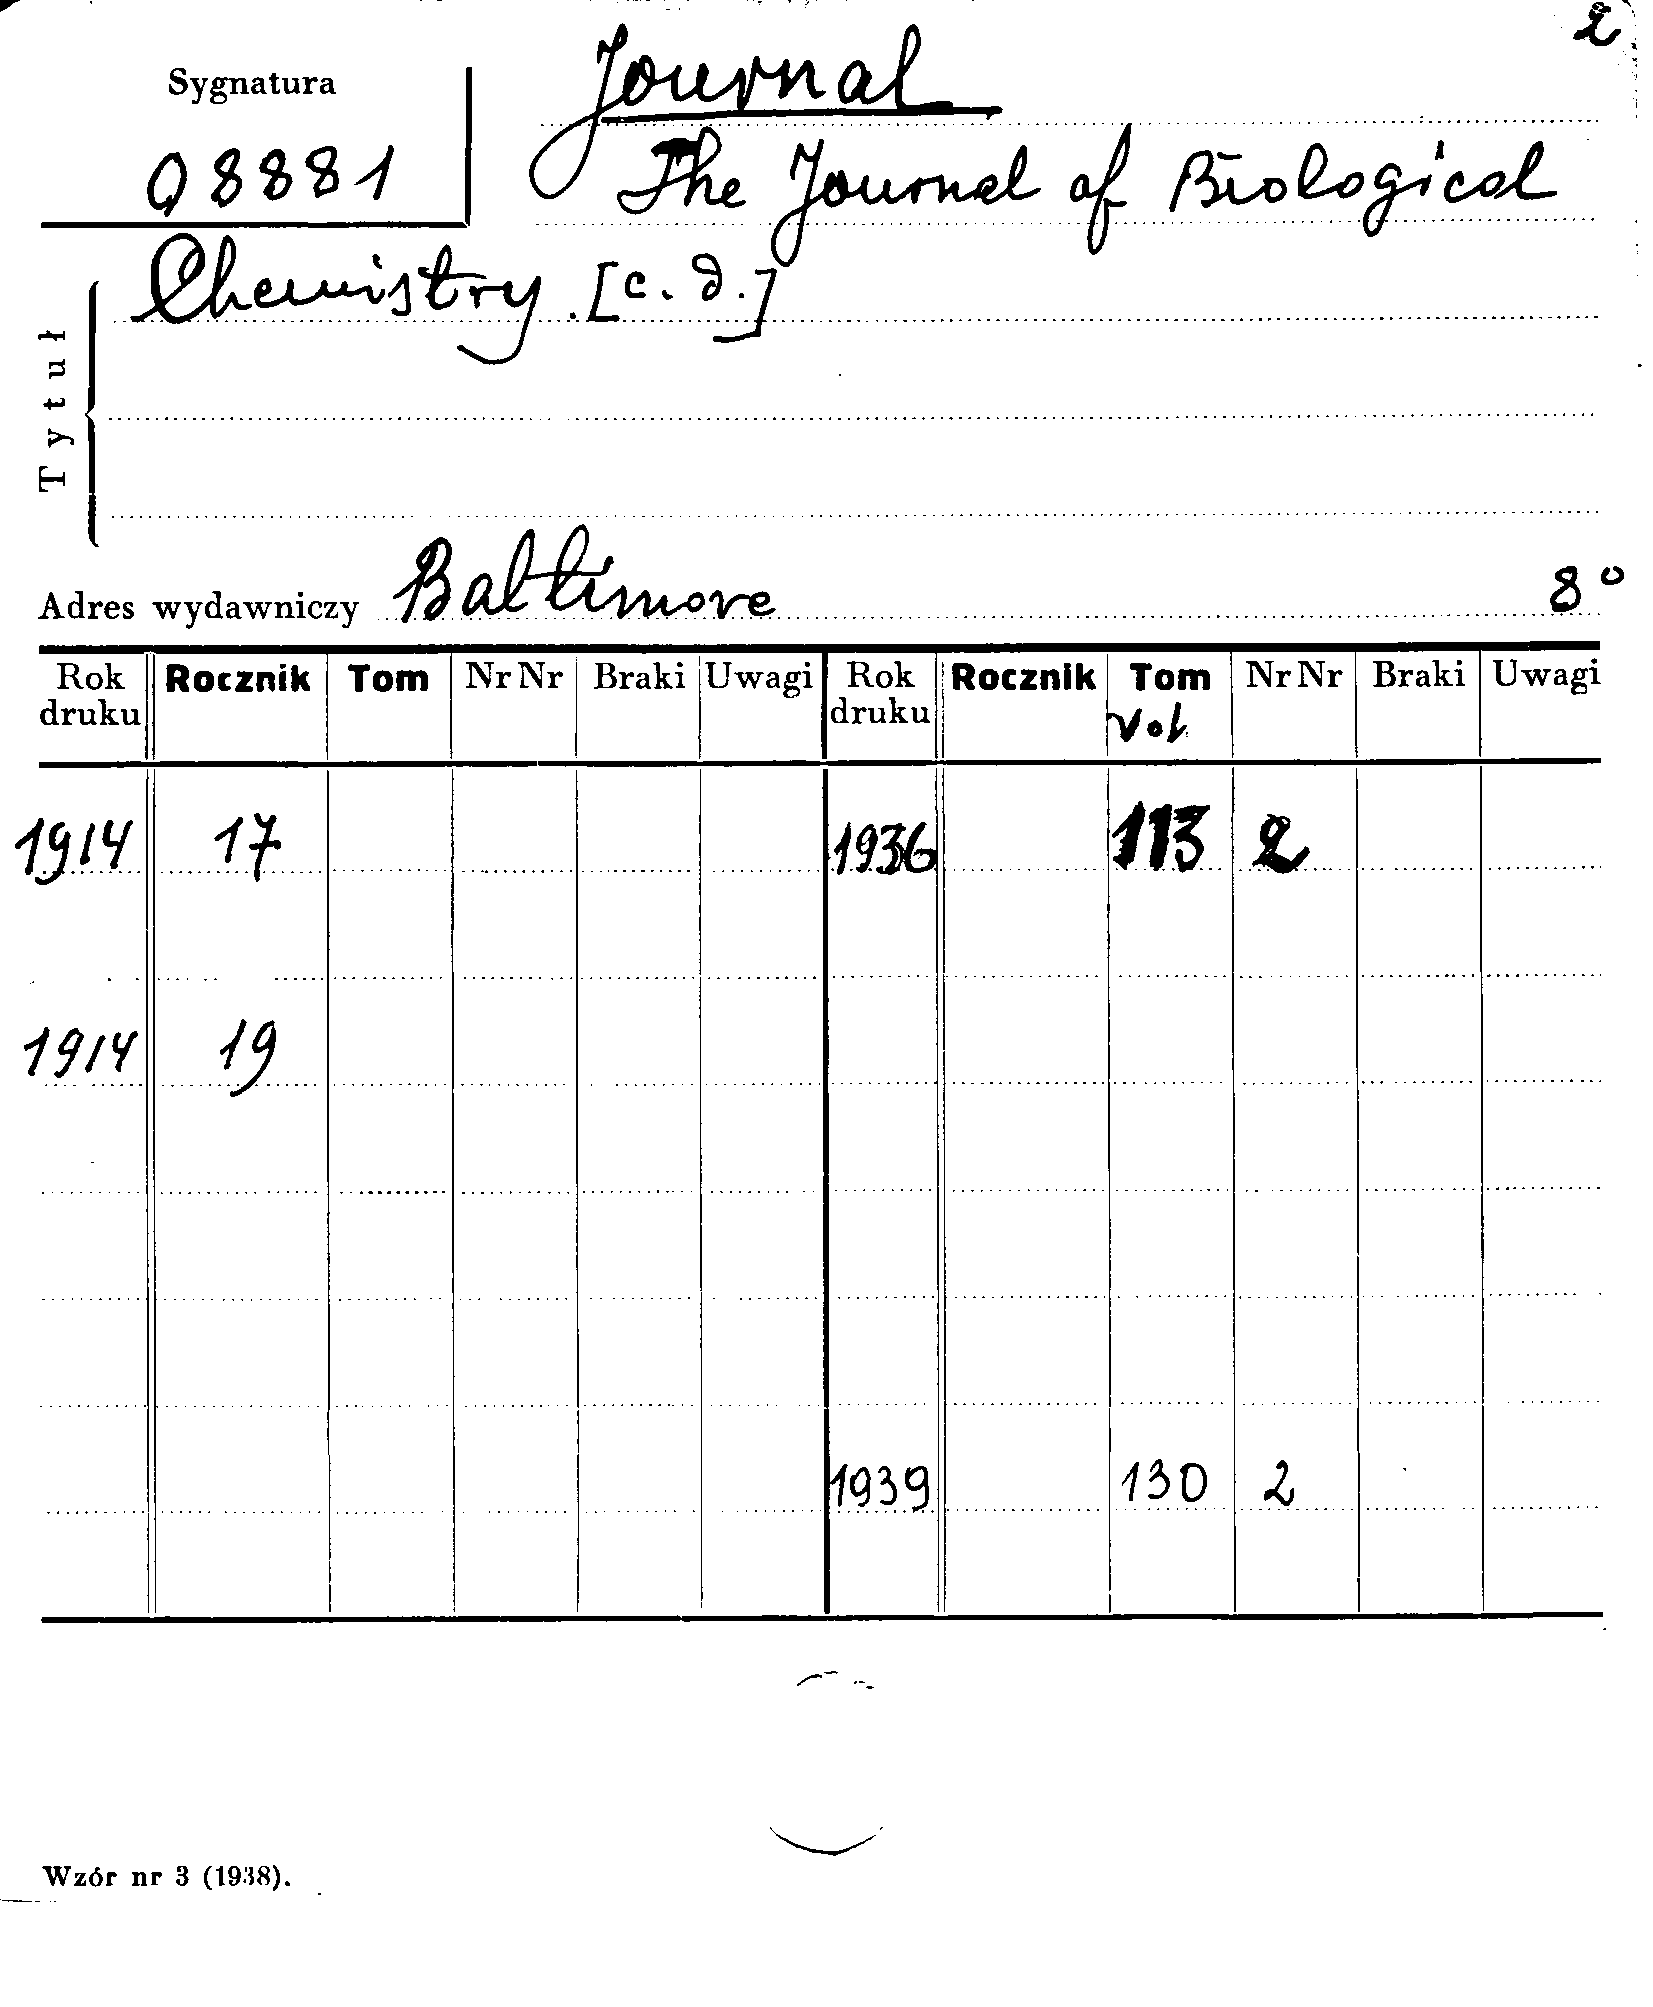 2
Sygnatura
Journal
08881
The Journal of Biological
Chemistry. [c. d.]
Tytuł
Adres wydawniczy Baltimore 8°
Rok druku Rocznik Tom NrNr Braki Uwagi Rok druku Rocznik Tom NrNr Braki Uwagi
Vol.
1914 17 1936 113 2
1914 19
1939 130 2
Wzór nr 3 (1938).